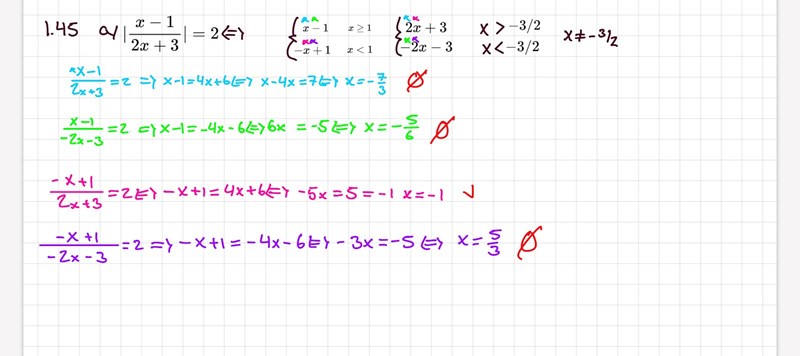 1.45 a) |x − 1 / 2x + 3| = 2 <=> { x − 1 x ≥ 1 { 2x + 3 x > −3/2 x ≠ −3/2
−x + 1 x < 1 −2x − 3 x < −3/2
x−1 / 2x+3 = 2 => x−1 = 4x+6 <=> x−4x = 7 <=> x = −7/3 ∅
x−1 / −2x−3 = 2 => x−1 = −4x−6 <=> 6x = −5 <=> x = −5/6 ∅
−x+1 / 2x+3 = 2 <=> −x+1 = 4x+6 <=> −5x = 5 = −1 x = −1 ✓
−x+1 / −2x−3 = 2 => −x+1 = −4x−6 <=> −3x = −5 <=> x = 5/3 ∅